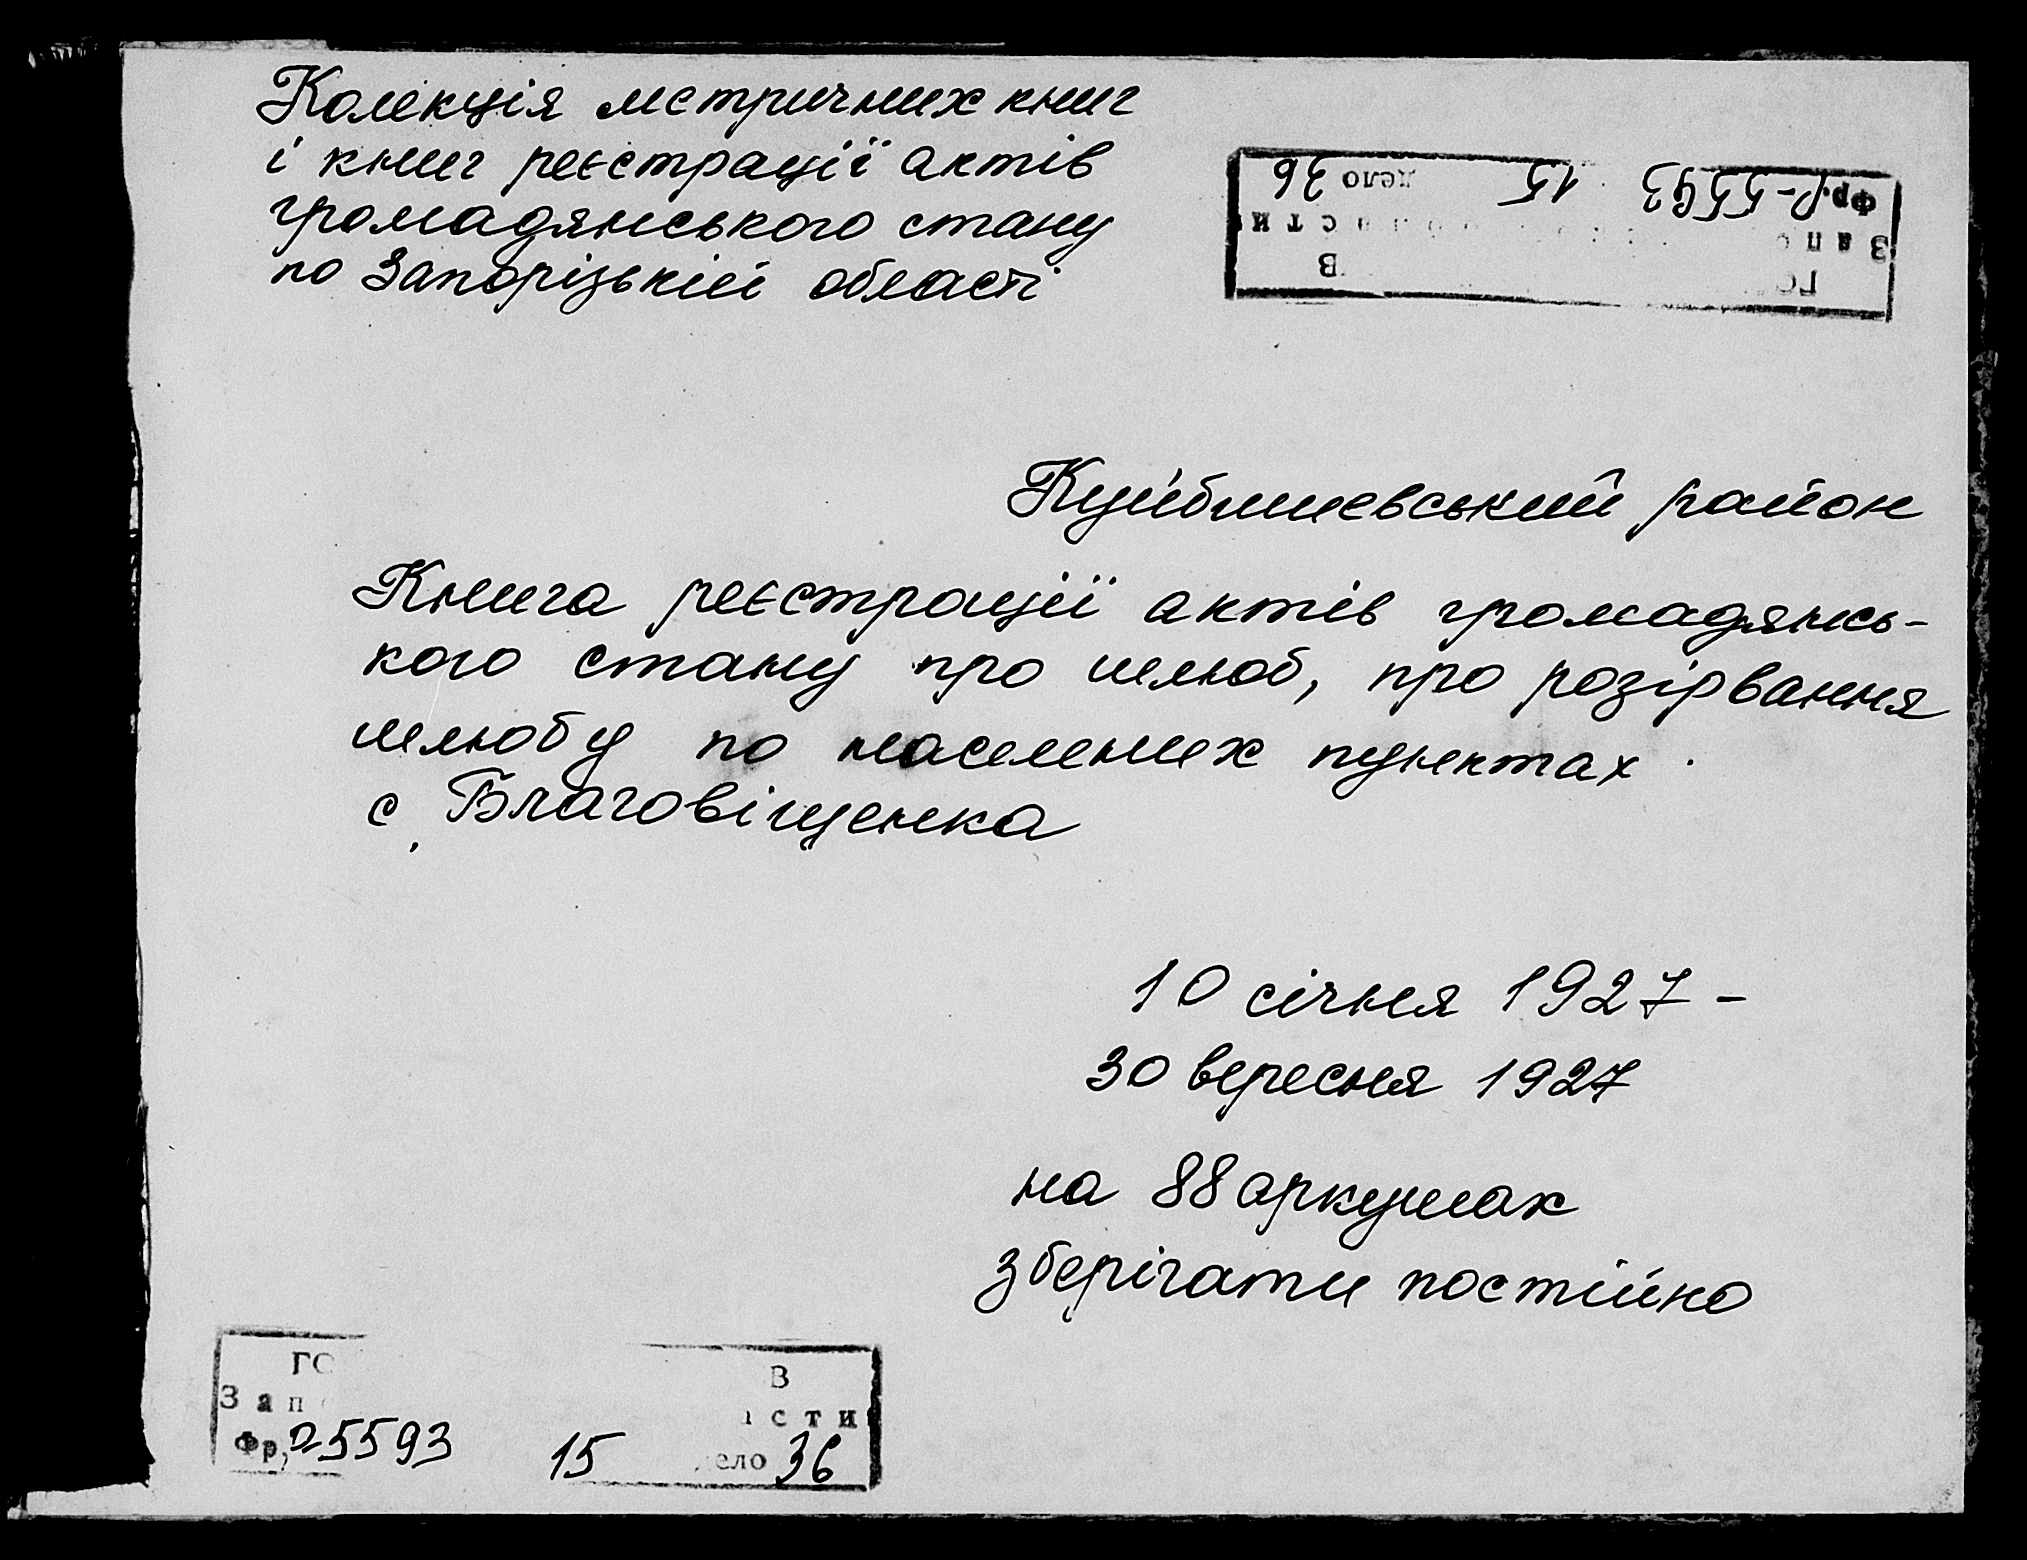 Колекція метричних книг
і книг реєстрації актів
громадянського стану
по Запорізькій області
Фр. Р-5593 15 дело 36
Куйбишевський район
Книга реєстрації актів громадянсь-
кого стану про шлюб, про розірвання
шлюбу по населених пунктах
с. Благовіщенка
10 січня 1927 –
30 вересня 1927
на 88 аркушах
зберігати постійно
ГО В
Зап сти
Фр. Р-5593 15 ело 36